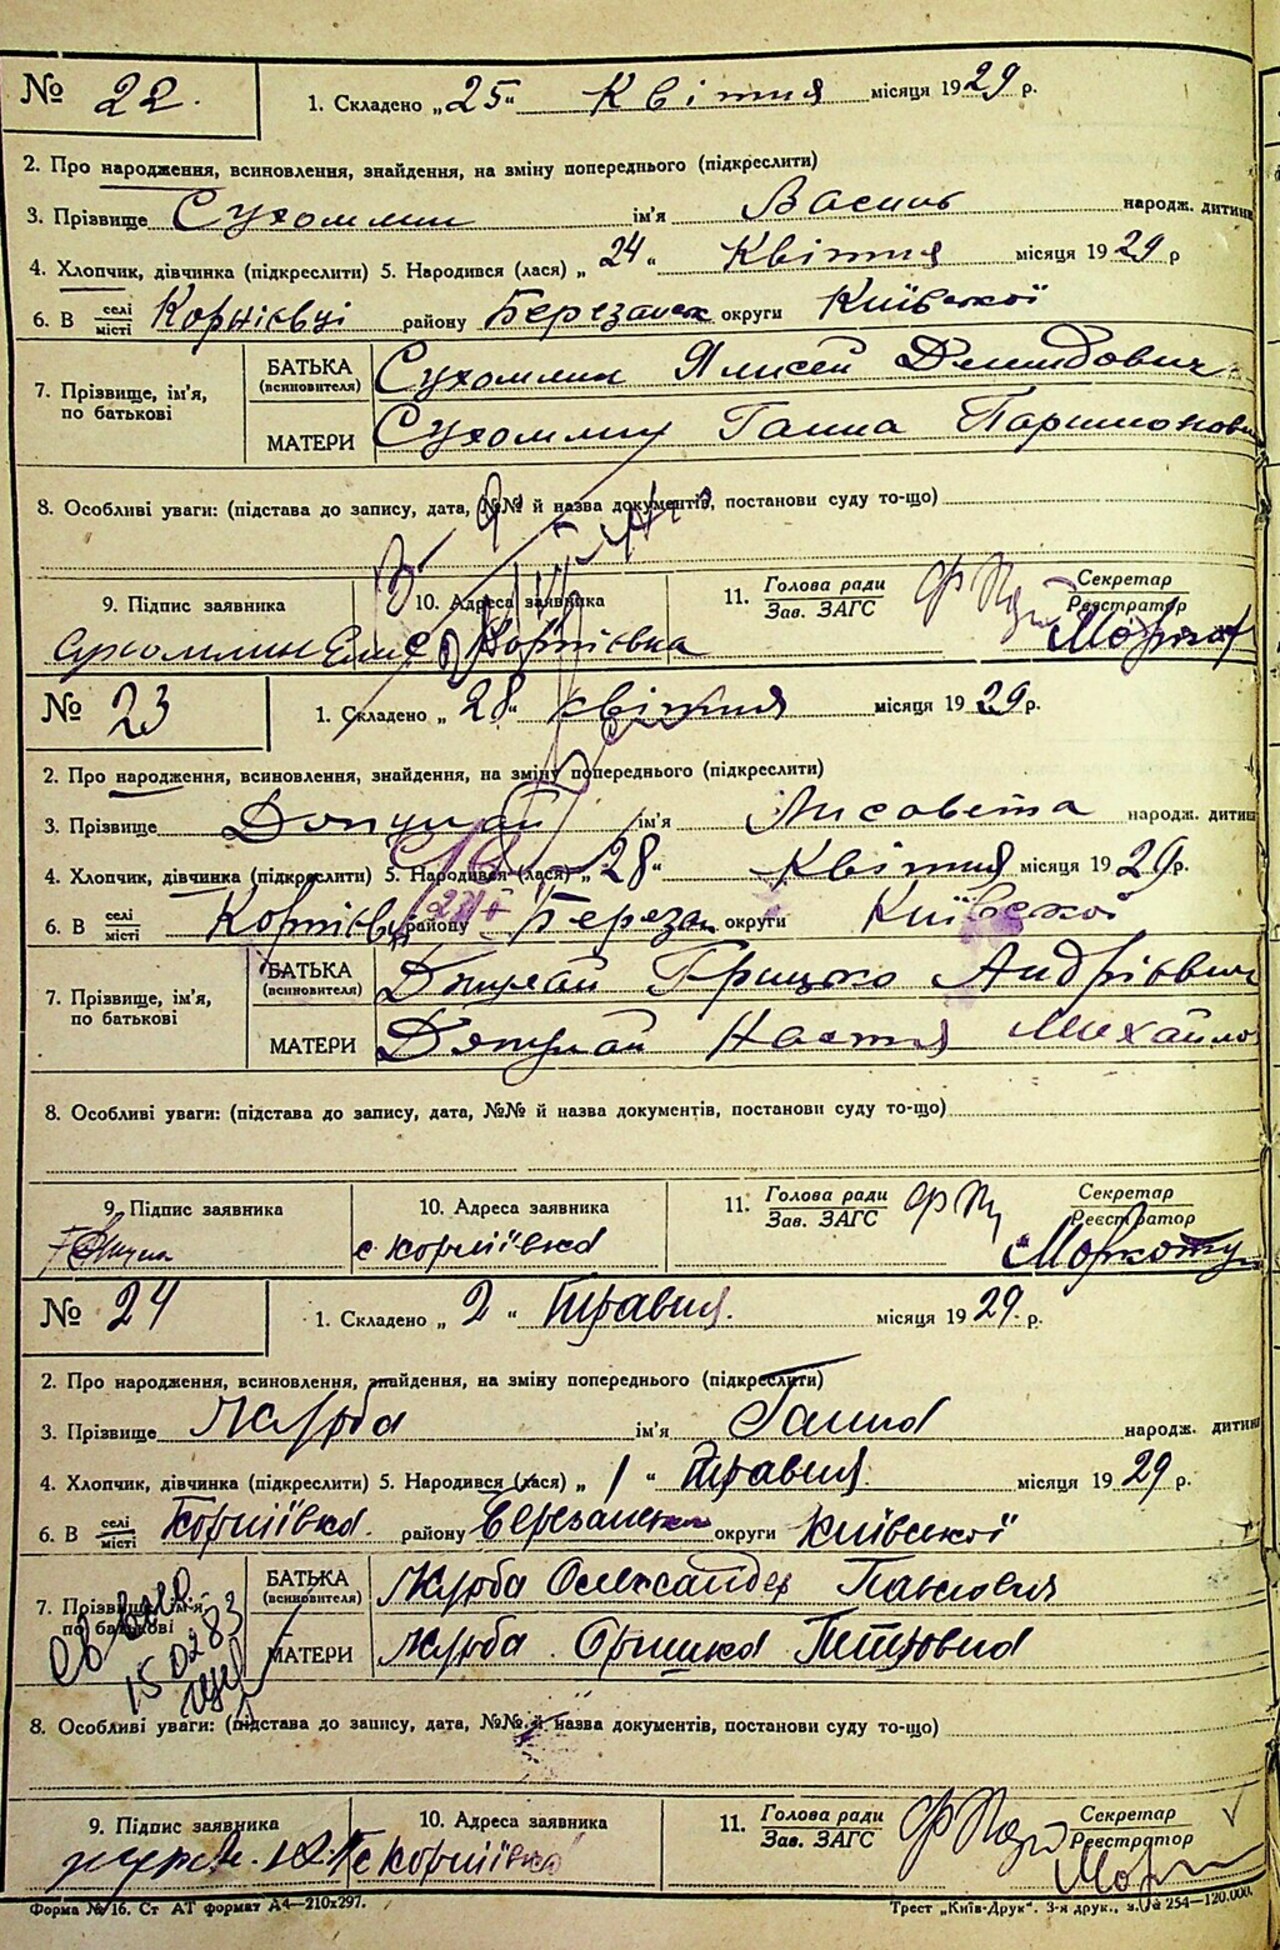 № 22. 1. Складено „25“ Квітня місяця 1929 р.
2. Про народження, всиновлення, знайдення, на зміну попереднього (підкреслити)
3. Прізвище Сухомлин ім'я Василь народж. дитини
4. Хлопчик, дівчинка (підкреслити) 5. Народився (лася) „24“ Квітня місяця 1929 р
6. В селі/місті Корнієвці району Березанск округи Київської
7. Прізвище, ім'я, по батькові
БАТЬКА (всиновителя) Сухомлин Алисей Демидович
МАТЕРИ Сухомлин Ганна
8. Особливі уваги: (підстава до запису, дата, №№ й назва документів, постанови суду то-що)
9. Підпис заявника 10. Адреса заявника 11. Голова ради/Зав. ЗАГС Секретар/Реєстратор
Сухомлин Корнієвка
№ 23 1. Складено „28“ квітня місяця 1929 р.
2. Про народження, всиновлення, знайдення, на зміну попереднього (підкреслити)
3. Прізвище ім'я Лисовета народж. дитини
4. Хлопчик, дівчинка (підкреслити) 5. Народився (лася) „28“ Квітня місяця 1929 р.
6. В селі/місті району Береза округи Київської
7. Прізвище, ім'я, по батькові
БАТЬКА (всиновителя) Грицько Андрієвич
МАТЕРИ Настя Михайло
8. Особливі уваги: (підстава до запису, дата, №№ й назва документів, постанови суду то-що)
9. Підпис заявника 10. Адреса заявника 11. Голова ради/Зав. ЗАГС Секретар/Реєстратор
с Корніївка
№ 24 1. Складено „2“ Травня. місяця 1929. р.
2. Про народження, всиновлення, знайдення, на зміну попереднього (підкреслити)
3. Прізвище Журба ім'я Ганна народж. дитини
4. Хлопчик, дівчинка (підкреслити) 5. Народився (лася) „1“ Травня. місяця 1929 р.
6. В селі/місті Корніївка. району округи Київської
7. Прізвище, ім'я, по батькові
БАТЬКА (всиновителя) Журба Олександер Павлович
МАТЕРИ Журба Оришка Петровна
15 02 83
8. Особливі уваги: (підстава до запису, дата, №№ й назва документів, постанови суду то-що)
9. Підпис заявника 10. Адреса заявника 11. Голова ради/Зав. ЗАГС Секретар/Реєстратор
с Корніївка
Форма № 16. Ст АТ формат А4—210х297. Трест „Київ-Друк“. 3-я друк., 254—120.000.